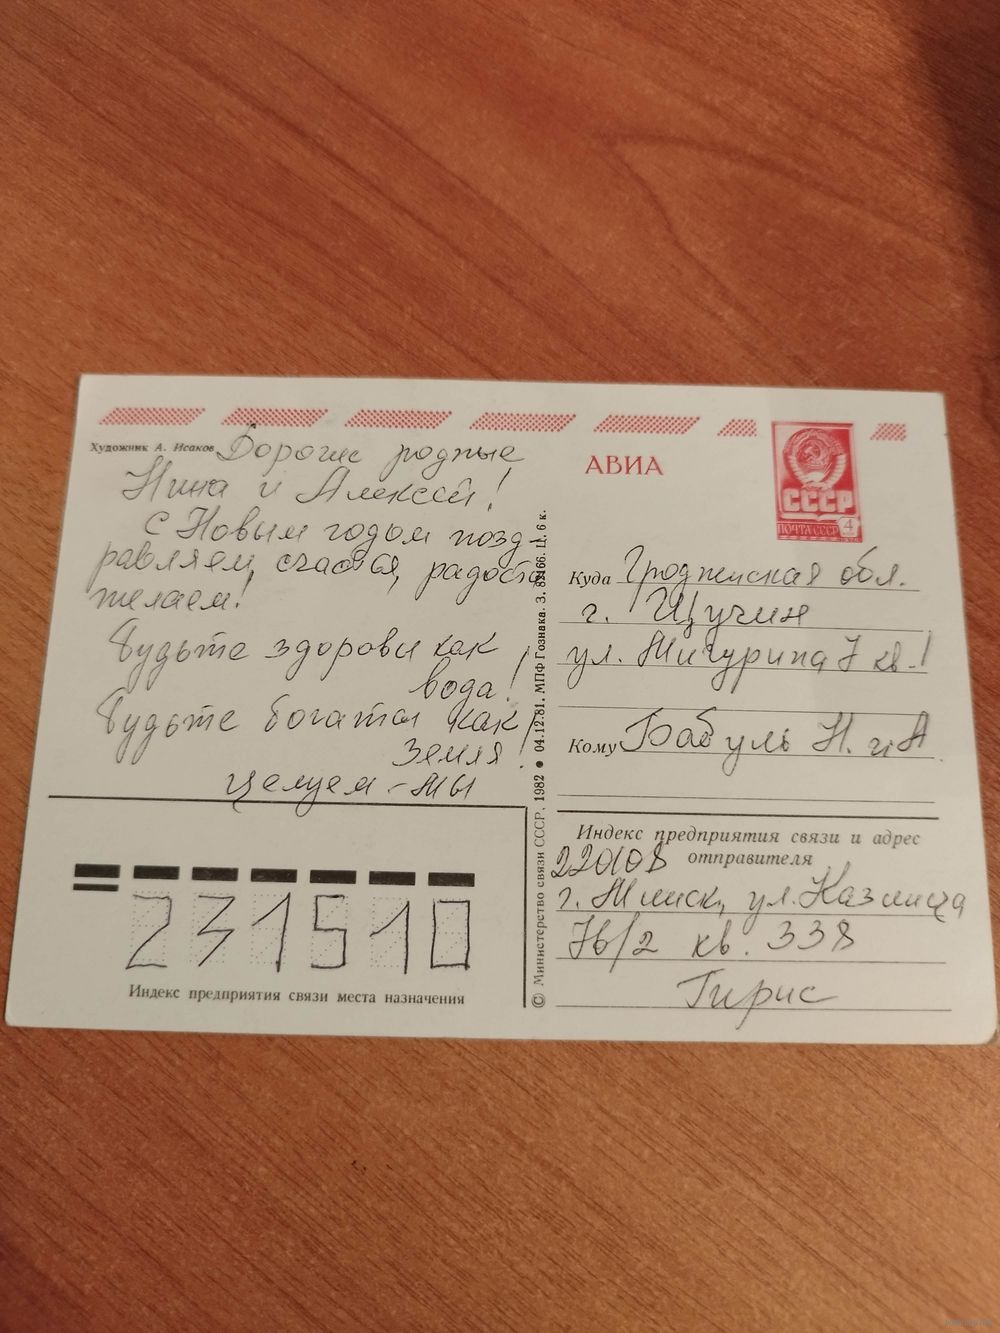 Художник А. Исаков
Дорогие родные
Нина и Алексей!
С Новым годом позд-
равляем, счастья, радости
желаем!
Будьте здоровы как
вода!
Будьте богаты как
Земля!
Целуем - мы
АВИА
СССР
ПОЧТА СССР 4
Куда Гродненская обл.
г. Щучин
ул. Мичурина 7 кв. 1
Кому Бабуль Н. и А.
Индекс предприятия связи и адрес
отправителя
220108
г. Минск, ул. Казинца
кв. 338
Гирис
231510
Индекс предприятия связи места назначения
© Министерство связи СССР, 1982 ● 04.12.81. МПФ Гознака. З. Ц. 6 к.